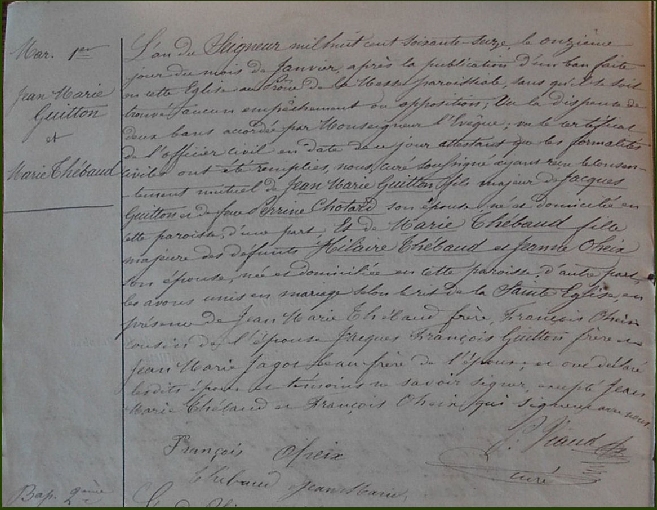 Mar. 1er
Jean Marie
Guitton
et
Marie Thébaud
L'an du Seigneur mil huit cent soixante-seize, le onzième
jour du mois de Janvier, après la publication d'un ban faite
en cette Eglise au Prône de la Messe paroissiale, sans qu'il se soit
trouvé aucun empêchement ou opposition; Vu la dispense de
deux bans accordée par Monseigneur l'Evêque; vu le certificat
de l'officier civil en date de ce jour attestant que les formalités
civiles ont été remplies, nous, curé soussigné ayant reçu le consen-
tement mutuel de Jean Marie Guitton, fils majeur de Jacques
Guitton et de Perrine Chotard son épouse, né et domicilié en
cette paroisse, d'une part; Et de Marie Thébaud fille
majeure des défunts Hilaire Thébaud et Oheix
son épouse, née et domiciliée en cette paroisse, d'autre part,
les avons unis en mariage selon le rit de la Sainte Eglise, en
présence de Jean Marie Thébaud frère, François Oheix
cousin de l'épouse Jacques François Guitton frère et
Jean Marie Jagot beau-frère de l'époux; et ont déclaré
lesdits époux et témoins ne savoir signer, excepté Jean
Marie Thébaud et François Oheix, qui signent avec nous
François Oheix
Thébaud Jean Marie
curé
Bap. 2ème